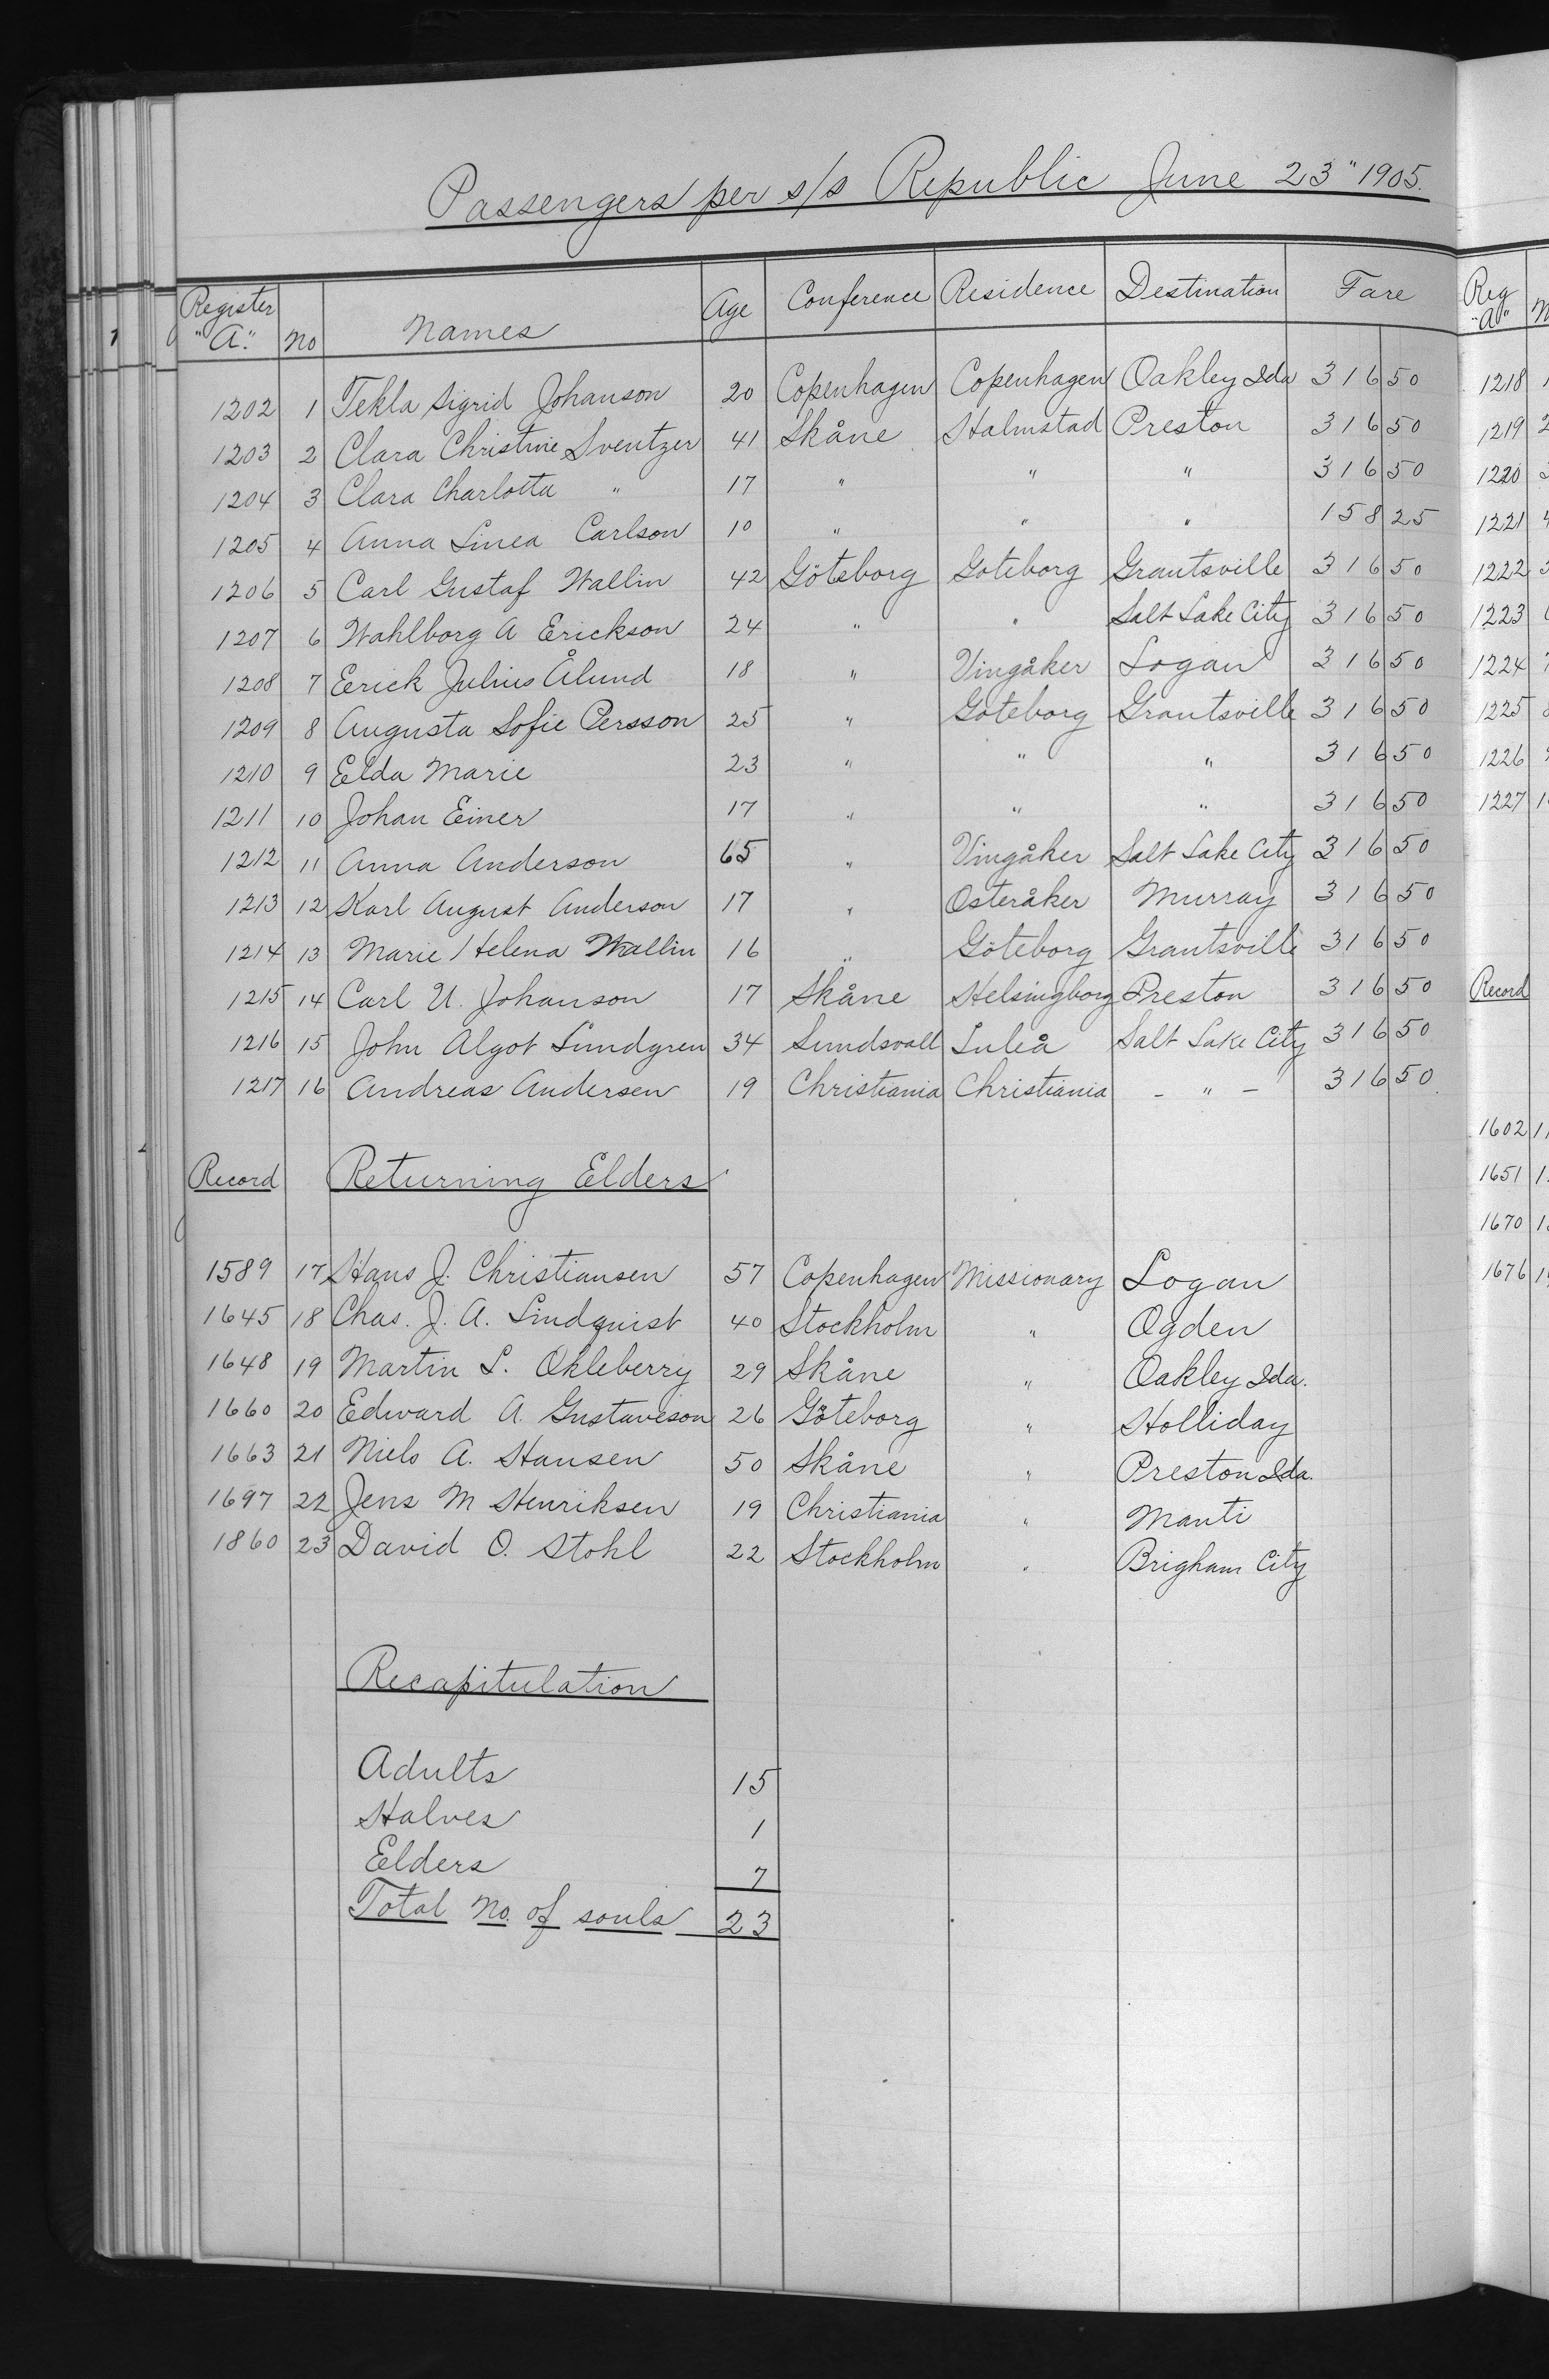 Passengers per s/s Republic June 23" 1905.
Register "A." No Names Age Conference Residence Destination Fare
1202 1 Tekla Sigrid Johanson 20 Copenhagen Copenhagen Oakley Ida 316 50
1203 2 Clara Christine Sventzer 41 Skåne Halmstad Preston 316 50
1204 3 Clara Charlotta " 17 " " " 316 50
1205 4 Anna Linea Carlson 10 " " " 158 25
1206 5 Carl Gustaf Wallin 42 Göteborg Goteborg Grantsville 316 50
1207 6 Wahlborg A Erickson 24 " " Salt Lake City 316 50
1208 7 Eerick Julius Ålund 18 " Vingåker Logan 316 50
1209 8 Augusta Sofie Persson 25 " Göteborg Grantsville 316 50
1210 9 Elda Marie 23 " " " 316 50
1211 10 Johan Einer 17 " " " 316 50
1212 11 Anna Anderson 65 " Vingåker Salt Lake City 316 50
1213 12 Karl August Anderson 17 " Osteråker Murray 316 50
1214 13 Marie Helena Wallin 16 " Göteborg Grantsville 316 50
1215 14 Carl U. Johanson 17 Skåne Helsingborg Preston 316 50
1216 15 John Algot Lundgren 34 Sundsvall Luleå Salt Lake City 316 50
1217 16 Andreas Andersen 19 Christiania Christiania - " - 316 50
Record Returning Elders
1589 17 Hans J. Christiansen 57 Copenhagen Missionary Logan
1645 18 Chas. J. A. Lindquist 40 Stockholm " Ogden
1648 19 Martin L. Okleberry 29 Skåne " Oakley Ida.
1660 20 Edward A. Gustaveson 26 Göteborg " Holliday
1663 21 Niels A. Hansen 50 Skåne " Preston Ida.
1697 22 Jens M Henriksen 19 Christiania " Manti
1860 23 David O. Stohl 22 Stockholm " Brigham City
Recapitulation
Adults 15
Halves 1
Elders 7
Total No. of souls 23
Reg "A"
1218
1219
1220
1221
1222
1223
1224
1225
1226
1227
Record
1602
1651
1670
1676